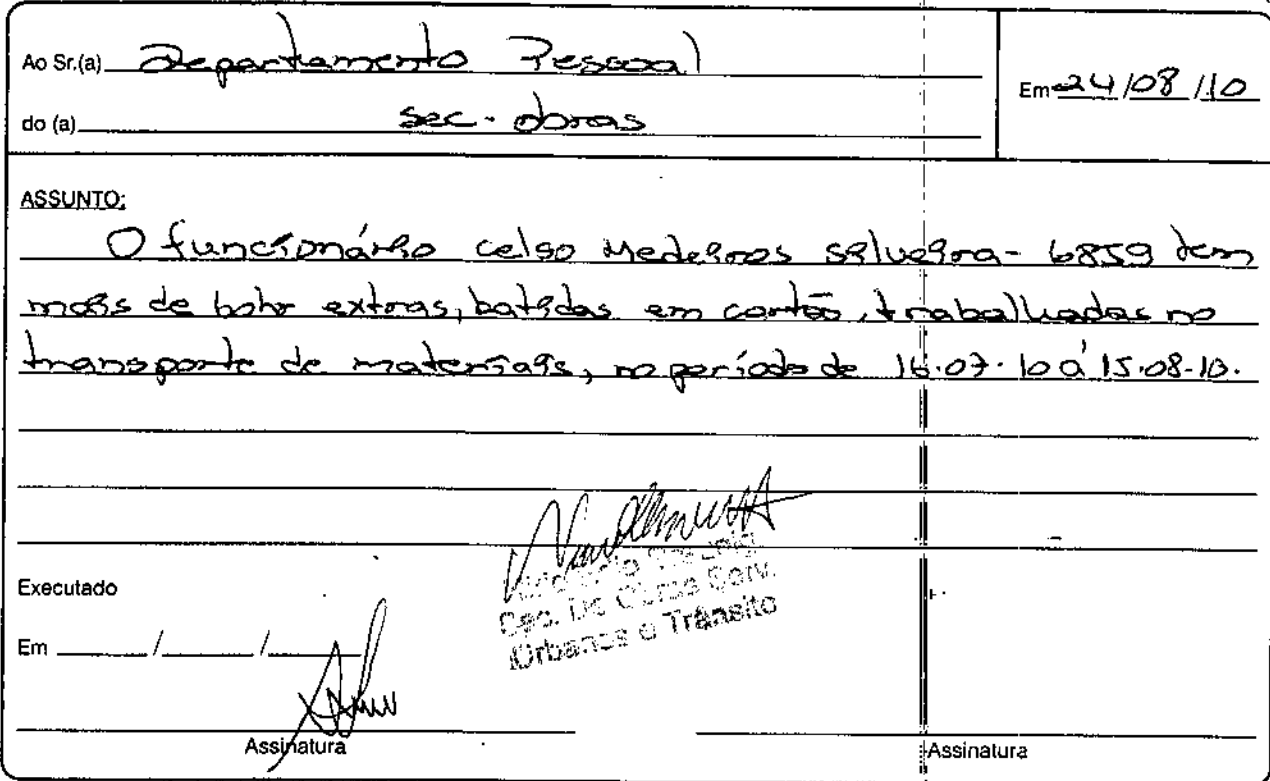 Ao Sr.(a) Departamento Pessoal
Em 24/08/10
do (a) sec. obras
ASSUNTO:
O funcionário celso Medeiros Silveira - 6859 tem
mais de extras, batidas em cartão, trabalhadas no
transporte de materiais, no período de 16.07.10 á 15.08.10.
Sec. De Obras Serv.
Urbanos e Trânsito
Executado
Em / /
Assinatura
Assinatura